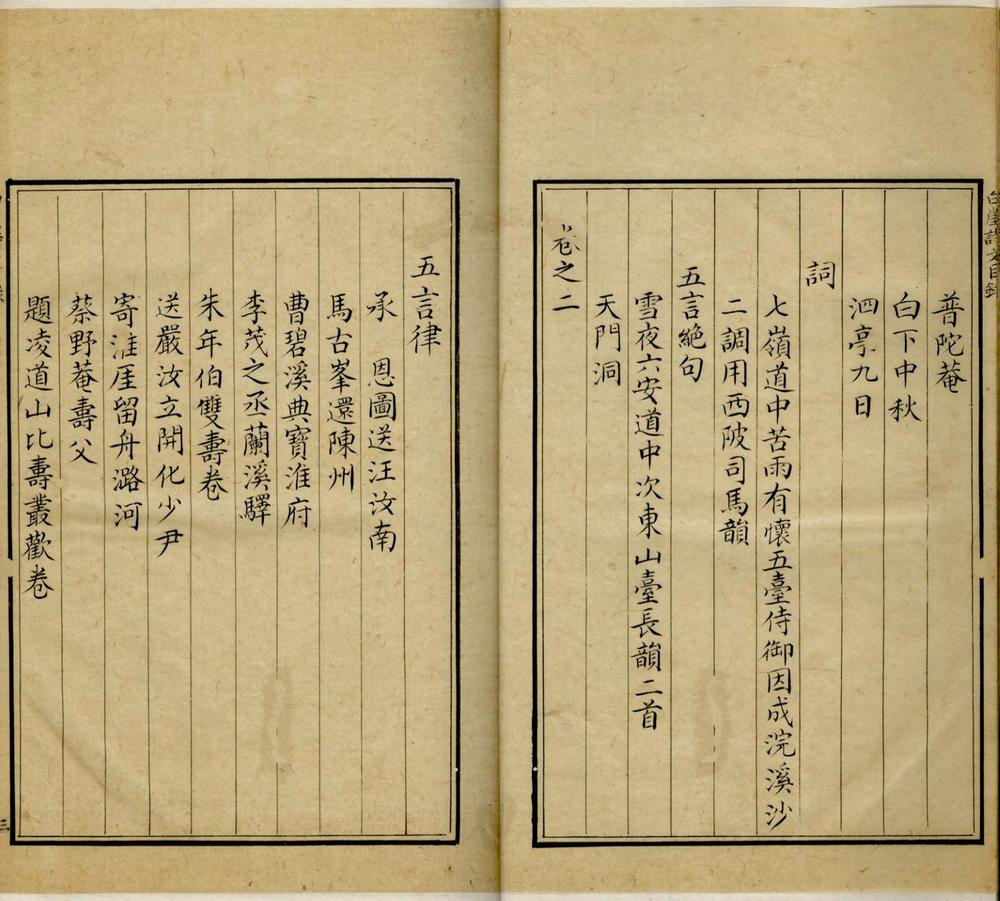 普陀菴
白下中秋
泗亭九日
詞
七嶺道中苦雨有懷五臺侍御因成浣溪沙
二調用西陂司馬韻
五言絶句
雪夜六安道中次東山臺長韻二首
天門洞
卷之二
五言律
承　恩圖送汪汝南
馬古峯還陳州
曹碧溪典寶淮府
李茂之丞蘭溪驛
朱年伯雙壽卷
送嚴汝立開化少尹
寄淮厓留舟潞河
蔡野菴壽父
題凌道山比壽叢歡卷
三